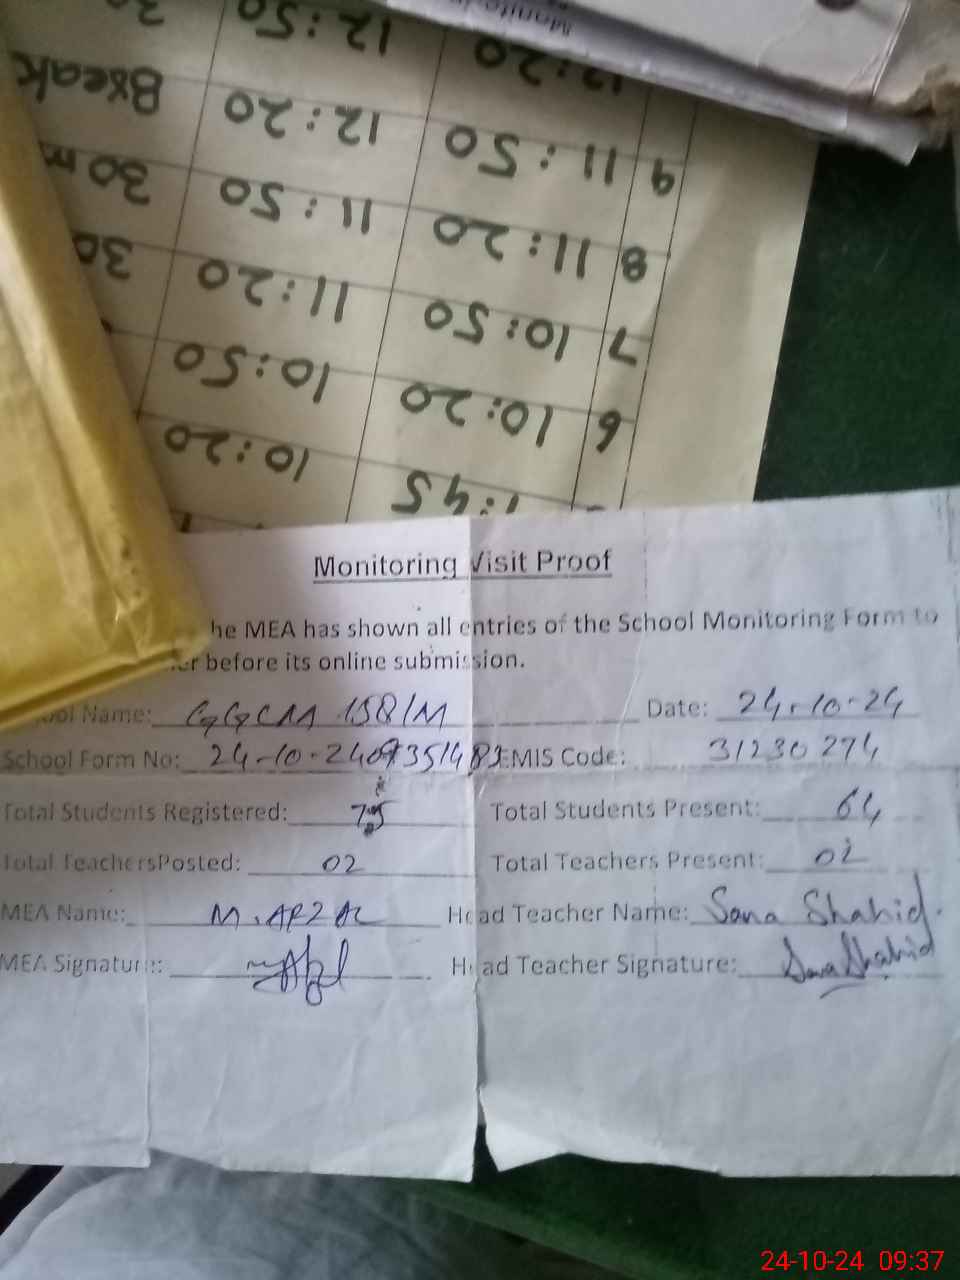 12:50 12:20
Break 12:20 11:50 9
30 m 11:50 11:20 8
30 11:20 10:50 7
10:50 10:20 6
10:20 :45
Monitoring Visit Proof
he MEA has shown all entries of the School Monitoring Form to
er before its online submission.
ool Name: GGCM 158/M Date: 24-10-24
School Form No: 24-10-2409351483 EMIS Code: 31230274
Total Students Registered: 75 Total Students Present: 64
Total TeachersPosted: 02 Total Teachers Present: 02
MEA Name: M. AFZAL Head Teacher Name: Sana Shahid.
MEA Signature: Head Teacher Signature: Sana Shahid
24-10-24 09:37